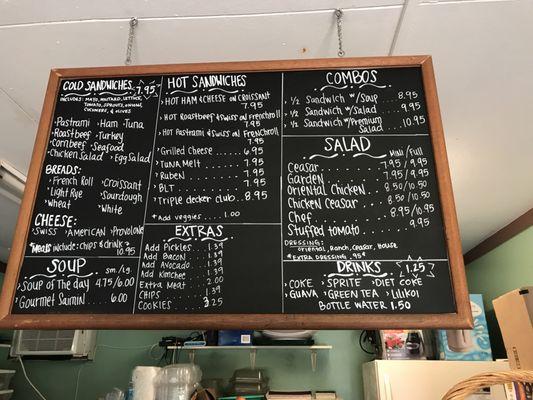 COLD SANDWICHES 7.95
INCLUDES: MAYO, MUSTARD, LETTUCE,
TOMATO, SPROUTS, ONIONS,
CUCUMBERS, & OLIVES
Pastrami Ham Tuna
Roast Beef Turkey
Corn Beef Seafood
Chicken Salad Egg Salad
BREADS:
French Roll Croissant
Light Rye Sourdough
Wheat White
CHEESE:
SWISS AMERICAN Provolone
*MEALS include: chips & drink
10.95
SOUP sm./lg.
Soup of the day 4.75/6.00
Gourmet Saimin 6.00
HOT SANDWICHES
HOT HAM & CHEESE ON CROISSANT
7.95
HOT ROAST BEEF & SWISS ON French roll
7.95
HOT Pastrami & SWISS ON French roll
7.95
Grilled Cheese 6.95
TUNA MELT 7.95
RUBEN 7.95
BLT 7.95
TRIPLE DECKER CLUB 8.95
* Add veggies 1.00
EXTRAS
Add Pickles 1.39
Add Bacon 1.39
Add Avocado 1.39
Add Kimchee 1.39
Extra Meat 2.00
CHIPS 1.39
COOKIES 3.25
COMBOS
1/2 SANDWICH W/SOUP 8.95
1/2 SANDWICH W/SALAD 9.95
1/2 SANDWICH W/Premium
Salad 10.95
SALAD Mini/Full
Ceasar 7.95/9.95
Garden 7.95/9.95
Oriental Chicken 8.50/10.50
Chicken Ceasar 8.50/10.50
Chef 8.95/10.95
Stuffed tomato 9.95
DRESSING:
ORIENTAL, Ranch, Ceasar, House
*EXTRA DRESSING .95*
DRINKS 1.25
COKE SPRITE DIET COKE
GUAVA GREEN TEA Lilikoi
BOTTLE WATER 1.50